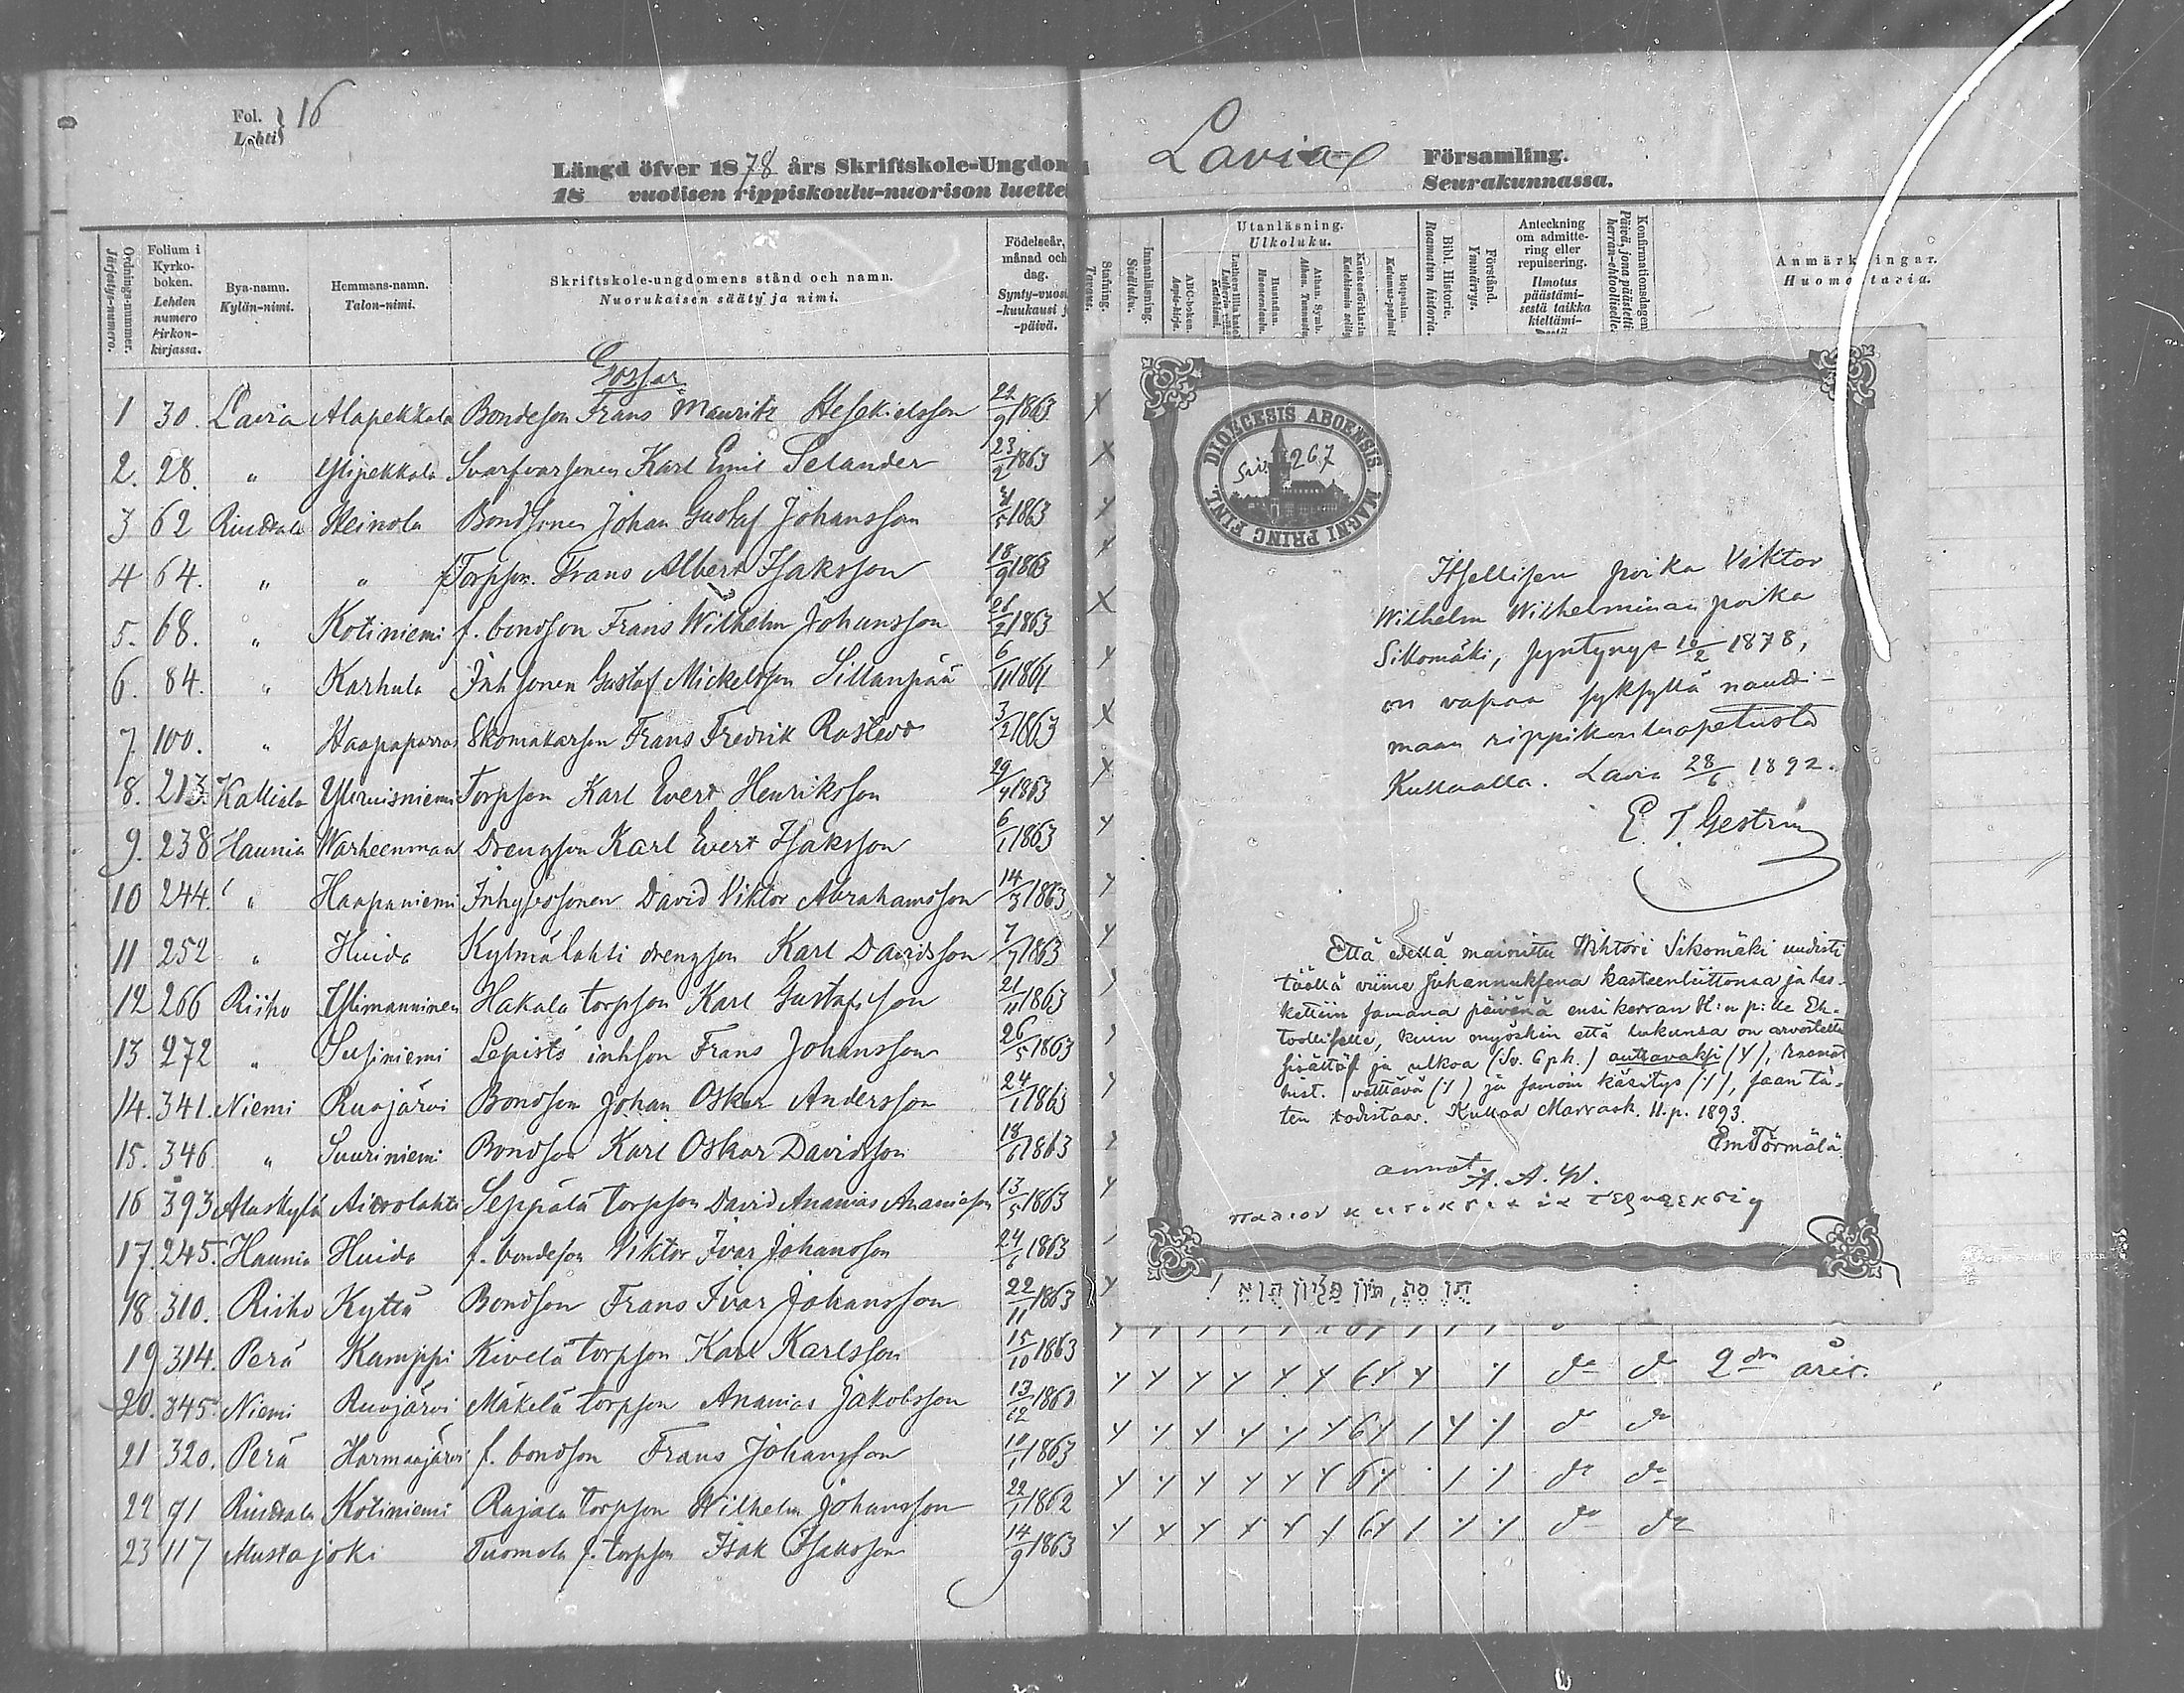 Fol. } 16
Lehti
Längd öfver 1878 års Skriftskole-Ungdom
18 vuotisen rippiskoulu-nuorison luette
Lavia Församling.
Seurakunnassa.
Ordnings-nummer.
Järjestys-numero.
Folium i Kyrko-boken.
Lehden numero kirkon-kirjassa.
Bya-namn.
Kylän-nimi.
Hemmans-namn.
Talon-nimi.
Skriftskole-ungdomens stånd och namn.
Nuorukaisen sääty ja nimi.
Födelseår, månad och dag.
Synty-vuosi -kuukausi j -päivä.
Stafning.
Tavaus.
Innanläsning.
Sisäluku.
Utanläsning.
Ulkoluku.
ABC-boken.
Aapis-kirja.
Hustaflan.
Huoneentaulu.
Athan. Symb.
Athan. Tunnustus
Botpsalm.
Katumus-psalmit
Bibl. Historie.
Raamatun historia.
Förstånd.
Ymmärrys.
Anteckning om admittering eller repulsering.
Ilmotus päästämisestä taikka kieltämi-
Konfirmationsdagen
Päivä, jona päästetti herran-ehtoolliselle.
Anmärkningar.
Huomattavia.
Gossar
1 30. Lavia Alapekkala Bondeson Frans Mauritz Heskielsson 22/9 1863
2. 28. " Ylipekkala Svarfvarsonen Karl Emil Selander 23/2 1863
3 62 Riuttala Heinola Bondsonen Johan Gustaf Johansson /5 1863
4 64. " " Torpson. Frans Albert Isaksson 18/9 1863
5. 68. " Kotiniemi f. bondson Frans Wilhelm Johansson 26/2 1863
6. 84. " Karhula Inhsonen Gustaf Mickelsson Sillanpää 6/11 1861
7. 100. " Haapaparras Skomakarson Frans Fredrik Rostedt 3/2 1863
8. 213. Kalliala Ylirusniemi Torpson Karl Evert Henriksson 29/4 1863
9. 238 Haunia Warheenmaa Drengson Karl Evert Isaksson 6/1 1863
10 244. " Haapaniemi Inhysessonen David Viktor Abrahamsson 14/3 1863
11 252 " Huida Kylmälahti drengson Karl Davidsson 7/7 1863
12 266 Riiho Ylimanninen Hakala torpson Karl Gustafsson 21/11 1863
13 272 " Susiniemi Lepistö inhson Frans Johansson 26/5 1863
14. 341. Niemi Ruojärvi Bondson Johan Oskar Andersson 24/1 1863
15. 346. " Suuriniemi Bondson Karl Oskar Davidsson 18/6 1863
16 393 Alaskylä Airolahti Seppälä torpson David Ananias Ananiasson 13/5 1863
17. 245. Haunia Huida f. bondeson Viktor Ivar Johansson 24/6 1863
18 310. Riiho Kyttä Bondson Frans Ivar Johansson 22/11 1863
19 314. Perä Kamppi Kivelä torpson Karl Karlsson 15/10 1863
20. 345. Niemi Ruojärvi Mäkelä torpson Ananias Jakobsson 13/12 1860
21 320. Perä Harmaajärvi f. bondson Frans Johansson 10/1 1863
22 91 Riuttala Kotiniemi Rajala torpson Wilhelm Johansson 22/1 1862
23 117 Mustajoki Tuomola f. torpson Isak Isaksson 14/9 1863
2dra året.
DIOECESIS ABOENSIS MAGNI PRINC FINL.
Siv. 267
Itsellisen poika Viktor
Wilhelm Wilhelminan poika
Sikomäki, syntynyt 10/2 1878,
on vapaa syksyllä nautti-
maan rippikouluopetusta
Kullaalla. Lavia 28/6 1892.
E. J. Geström
Että edellä mainittu Wihtori Sikomäki uudisti
täällä viime Juhannuksena kasteenliittonsa ja las-
kettiin samana päivänä ensi kerran H:n p:lle Eh-
toolliselle, kuin myöskin että lukunsa on arvosteltu
sisältä ja ulkoa (Sv. 6 ph.) auttavaksi (Y), Raamat
hist. välttävä (/) ja samoin käsitys (/), saan tä-
ten todistaa. Kullaa Marrask. 11. p. 1893.
Em. Törmälä.
annet A. A. W.